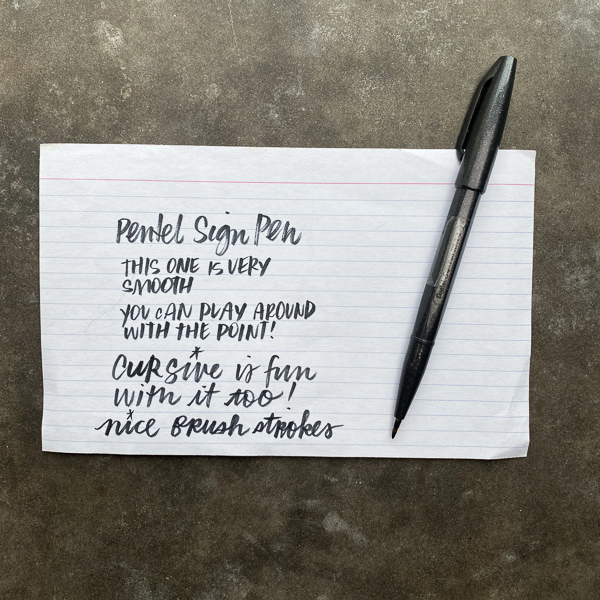 Pentel Sign Pen
THIS ONE IS VERY
SMOOTH
YOU CAN PLAY AROUND
WITH THE POINT!
CURSIVE is fun
with it too!
*nice BRUSH strokes*